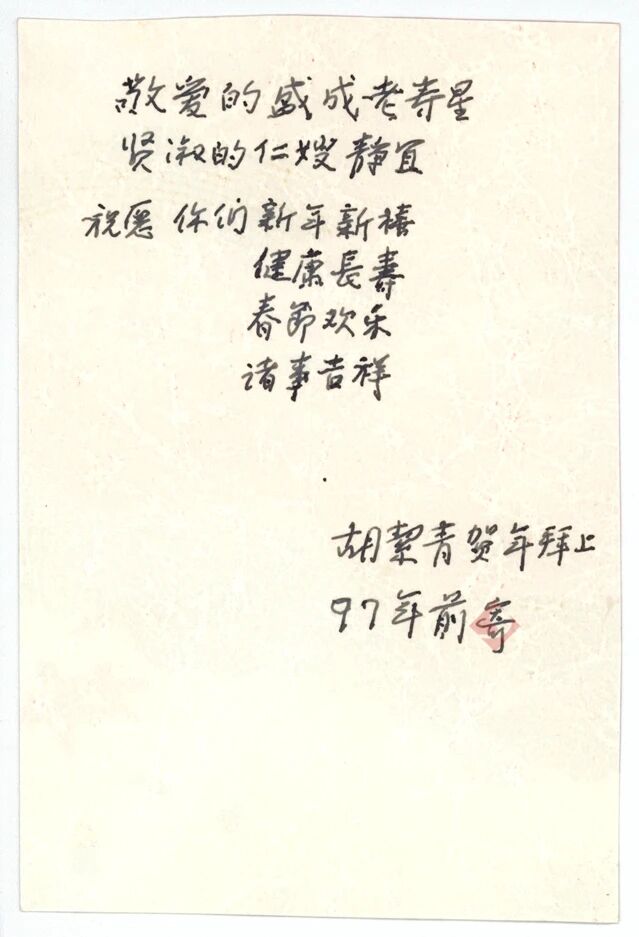 敬爱的盛成老寿星
贤淑的仁嫂静宜
祝愿你们新年新禧
健康長寿
春節欢乐
诸事吉祥
胡絜青贺年拜上
97年前寄